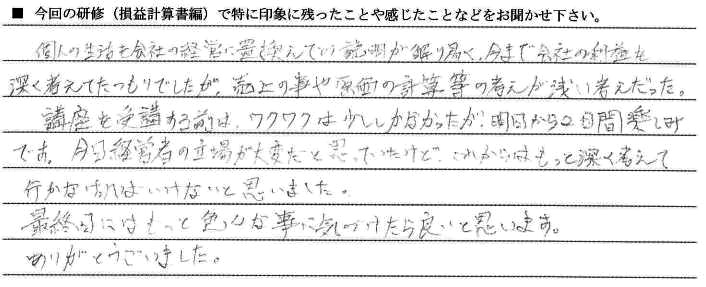 ■ 今回の研修（損益計算書編）で特に印象に残ったことや感じたことなどをお聞かせ下さい。
個人の生活を会社の経営に置き換えていう説明が解り易く、今まで会社の利益も
深く考えてたつもりでしたが、売上の事や原価の計算等の考えが浅い考えだった。
講座を受講する前は、ワクワクは少ししかなかったが、明日から2日間楽しみ
です。今日経営者の立場が大変だと思っていたけど、これからはもっと深く考えて
行かなければいけないと思いました。
最終日にはもっと色んな事に気づけたら良いと思います。
ありがとうございました。